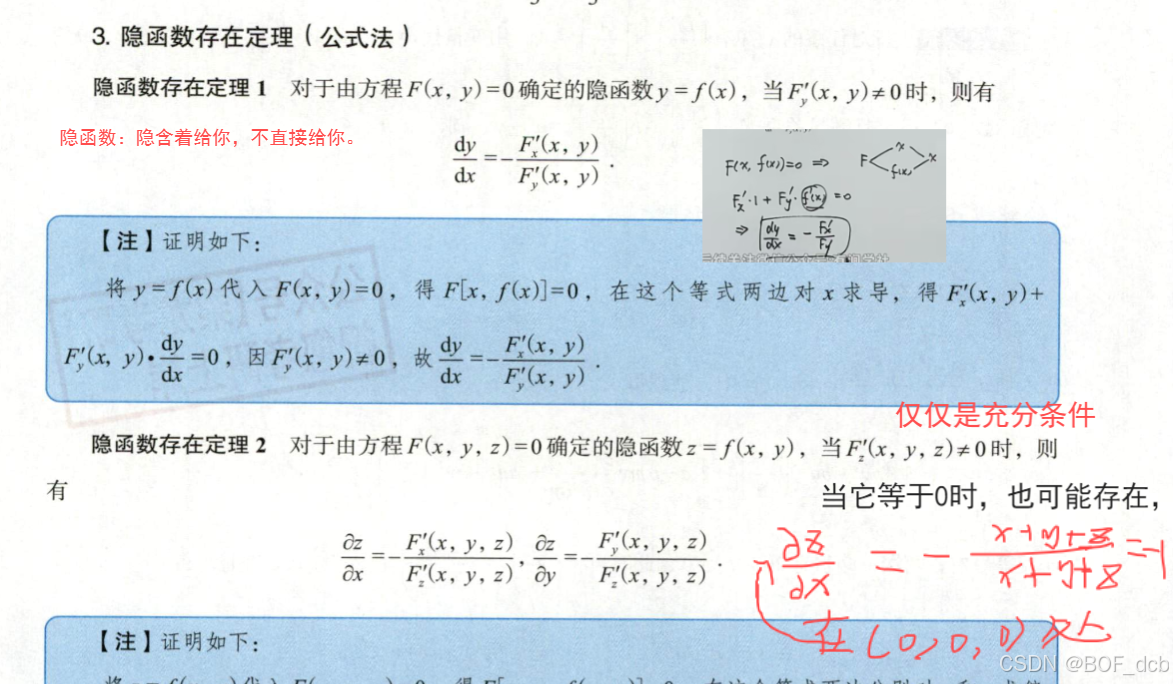 3. 隐函数存在定理（公式法）
隐函数存在定理 1 对于由方程 F(x, y)=0 确定的隐函数 y=f(x)，当 F′y(x, y)≠0 时，则有
隐函数：隐含着给你，不直接给你。
dy/dx = - F′x(x, y)/F′y(x, y) .
F(x, f(x))=0 ⇒ F x f(x) x
F′x·1 + F′y·f′(x) =0
⇒ dy/dx = - F′x/F′y
【注】证明如下：
将 y=f(x) 代入 F(x, y)=0，得 F[x, f(x)]=0，在这个等式两边对 x 求导，得 F′x(x, y)+
F′y(x, y)·dy/dx=0，因 F′y(x, y)≠0，故 dy/dx = - F′x(x, y)/F′y(x, y) .
仅仅是充分条件
隐函数存在定理 2 对于由方程 F(x, y, z)=0 确定的隐函数 z=f(x, y)，当 F′z(x, y, z)≠0 时，则
有
当它等于0时，也可能存在，
∂z/∂x = - F′x(x, y, z)/F′z(x, y, z), ∂z/∂y = - F′y(x, y, z)/F′z(x, y, z) .
∂z/∂x = - x+y+z/x+y+z =-1
在(0,0,0)处
【注】证明如下：
CSDN @BOF_dcb